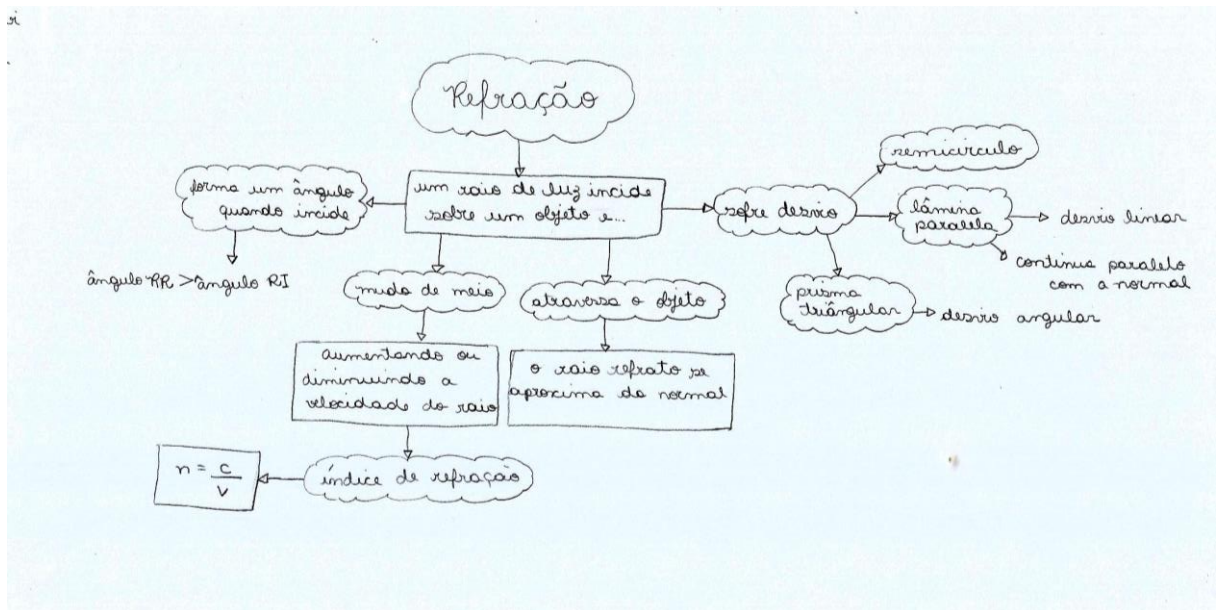 Refração
um raio de luz incide
sobre um objeto e...
forma um ângulo
quando incide
ângulo RR > ângulo RI
muda de meio
aumentando ou
diminuindo a
velocidade do raio
índice de refração
n = c
v
atravessa o objeto
o raio refrato se
aproxima da normal
sofre desvio
semicírculo
lâmina
paralela
desvio linear
continua paralelo
com a normal
prisma
triângular
desvio angular